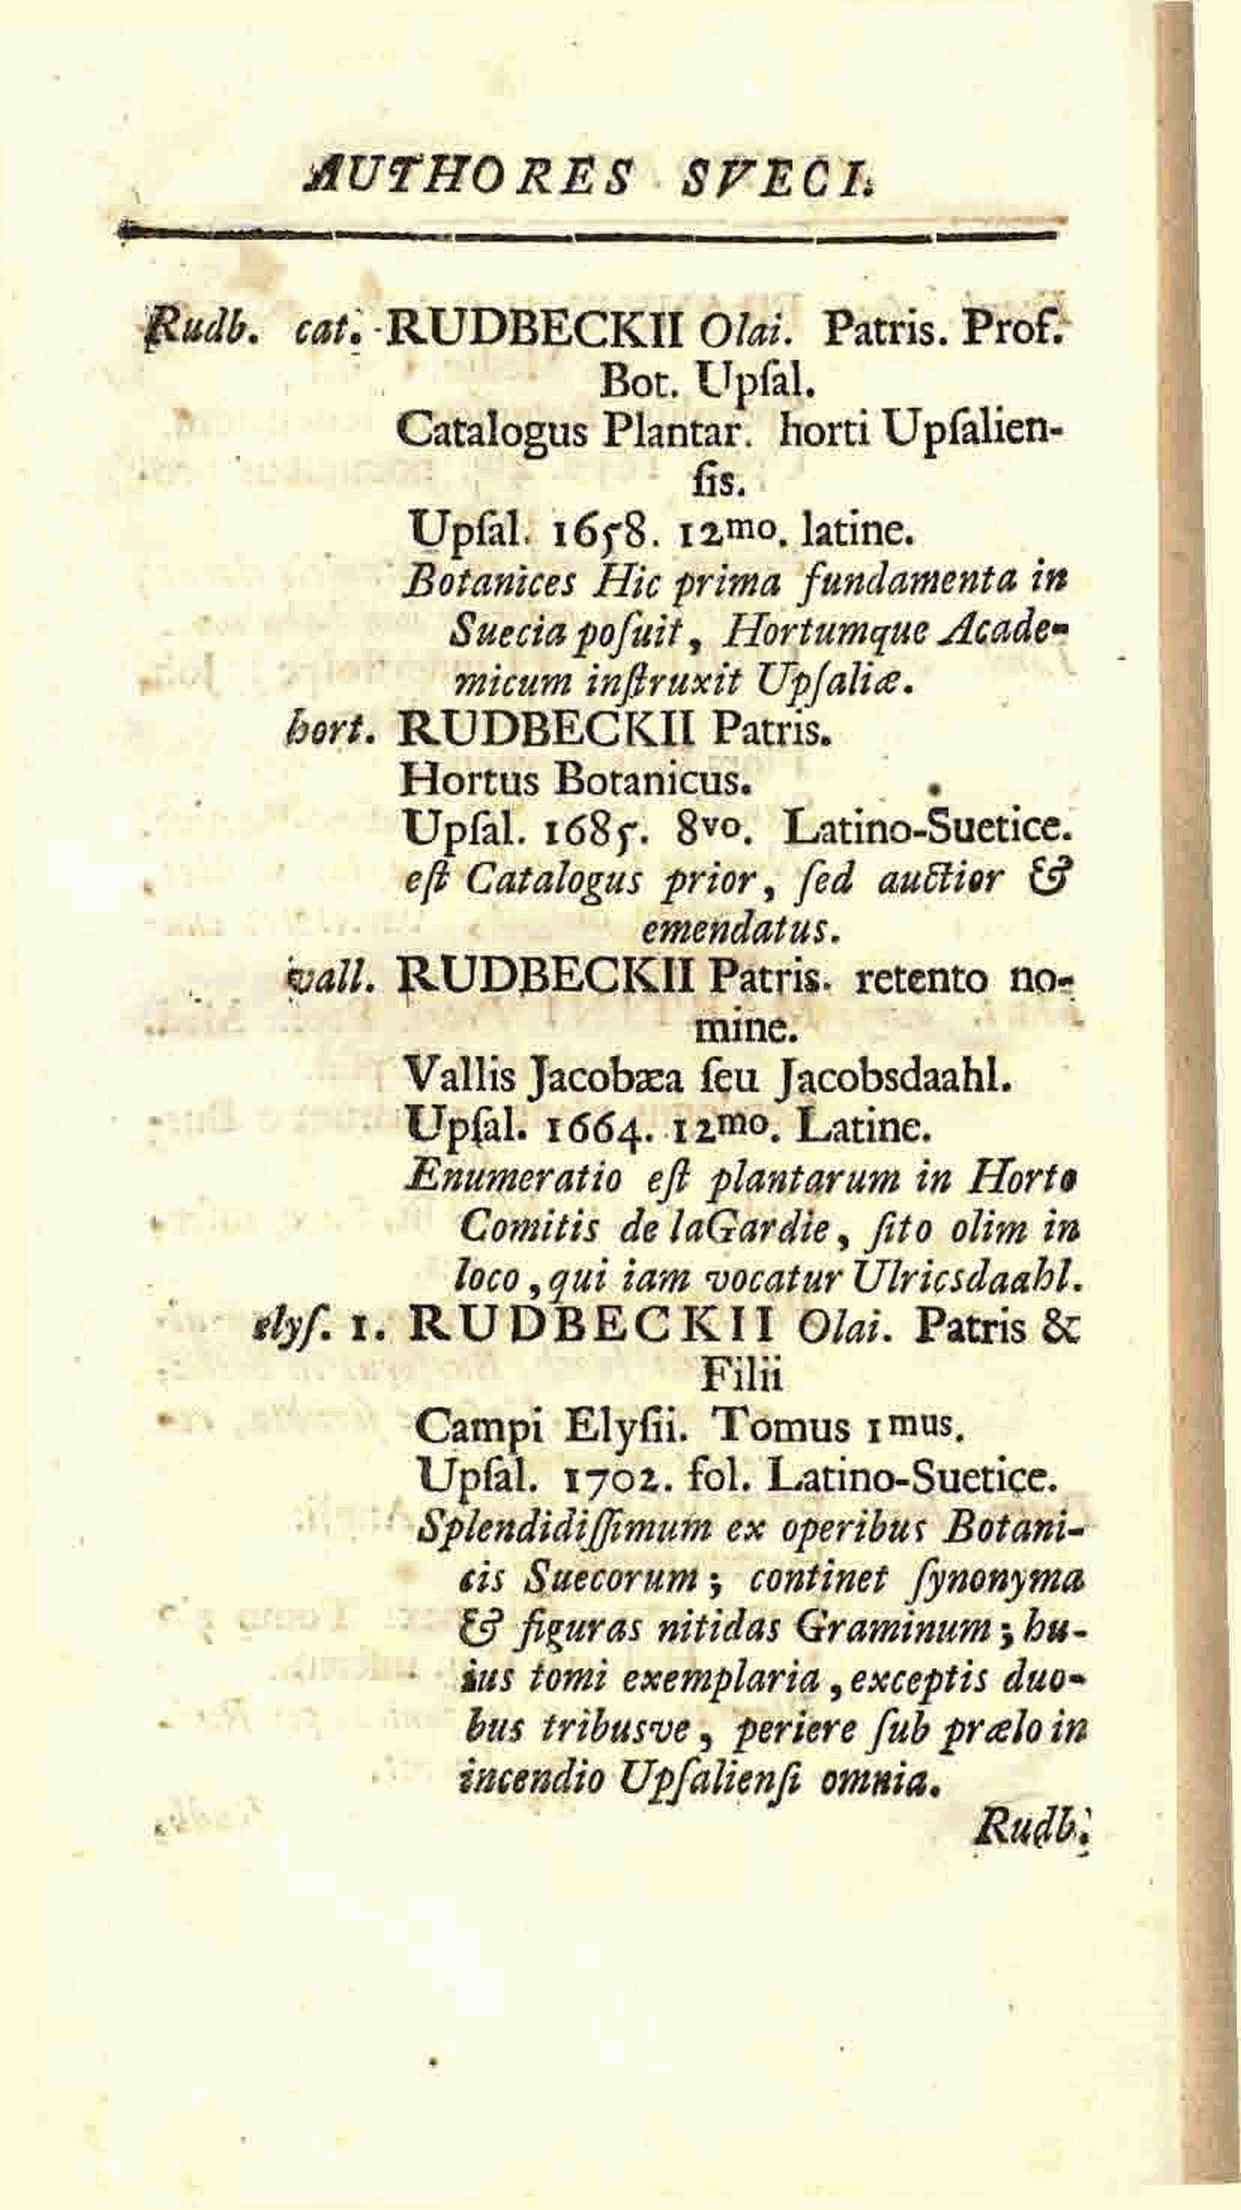 AUTHORES SVECI.
Rudb. cat. RUDBECKII Olai. Patris. Prof.
Bot. Upſal.
Catalogus Plantar. horti Upſalien-
ſis.
Upſal. 1658. 12mo. latine.
Botanices Hic prima fundamenta in
Suecia poſuit, Hortumque Acade-
micum inſtruxit Upſaliæ.
hort. RUDBECKII Patris.
Hortus Botanicus.
Upſal. 1685. 8vo. Latino-Suetice.
eſt Catalogus prior, ſed auctior &
emendatus.
vall. RUDBECKII Patris. retento no-
mine.
Vallis Jacobæa ſeu Jacobsdaahl.
Upſal. 1664. 12mo. Latine.
Enumeratio eſt plantarum in Horto
Comitis de laGardie, ſito olim in
loco, qui iam vocatur Ulricsdaahl.
elyſ. 1. RUDBECKII Olai. Patris &
Filii
Campi Elyſii. Tomus 1mus.
Upſal. 1702. fol. Latino-Suetice.
Splendidiſſimum ex operibus Botani-
cis Suecorum; continet ſynonyma
& figuras nitidas Graminum; hu-
ius tomi exemplaria, exceptis duo-
bus tribusve, periere ſub prælo in
incendio Upſalienſi omnia.
Rudb.